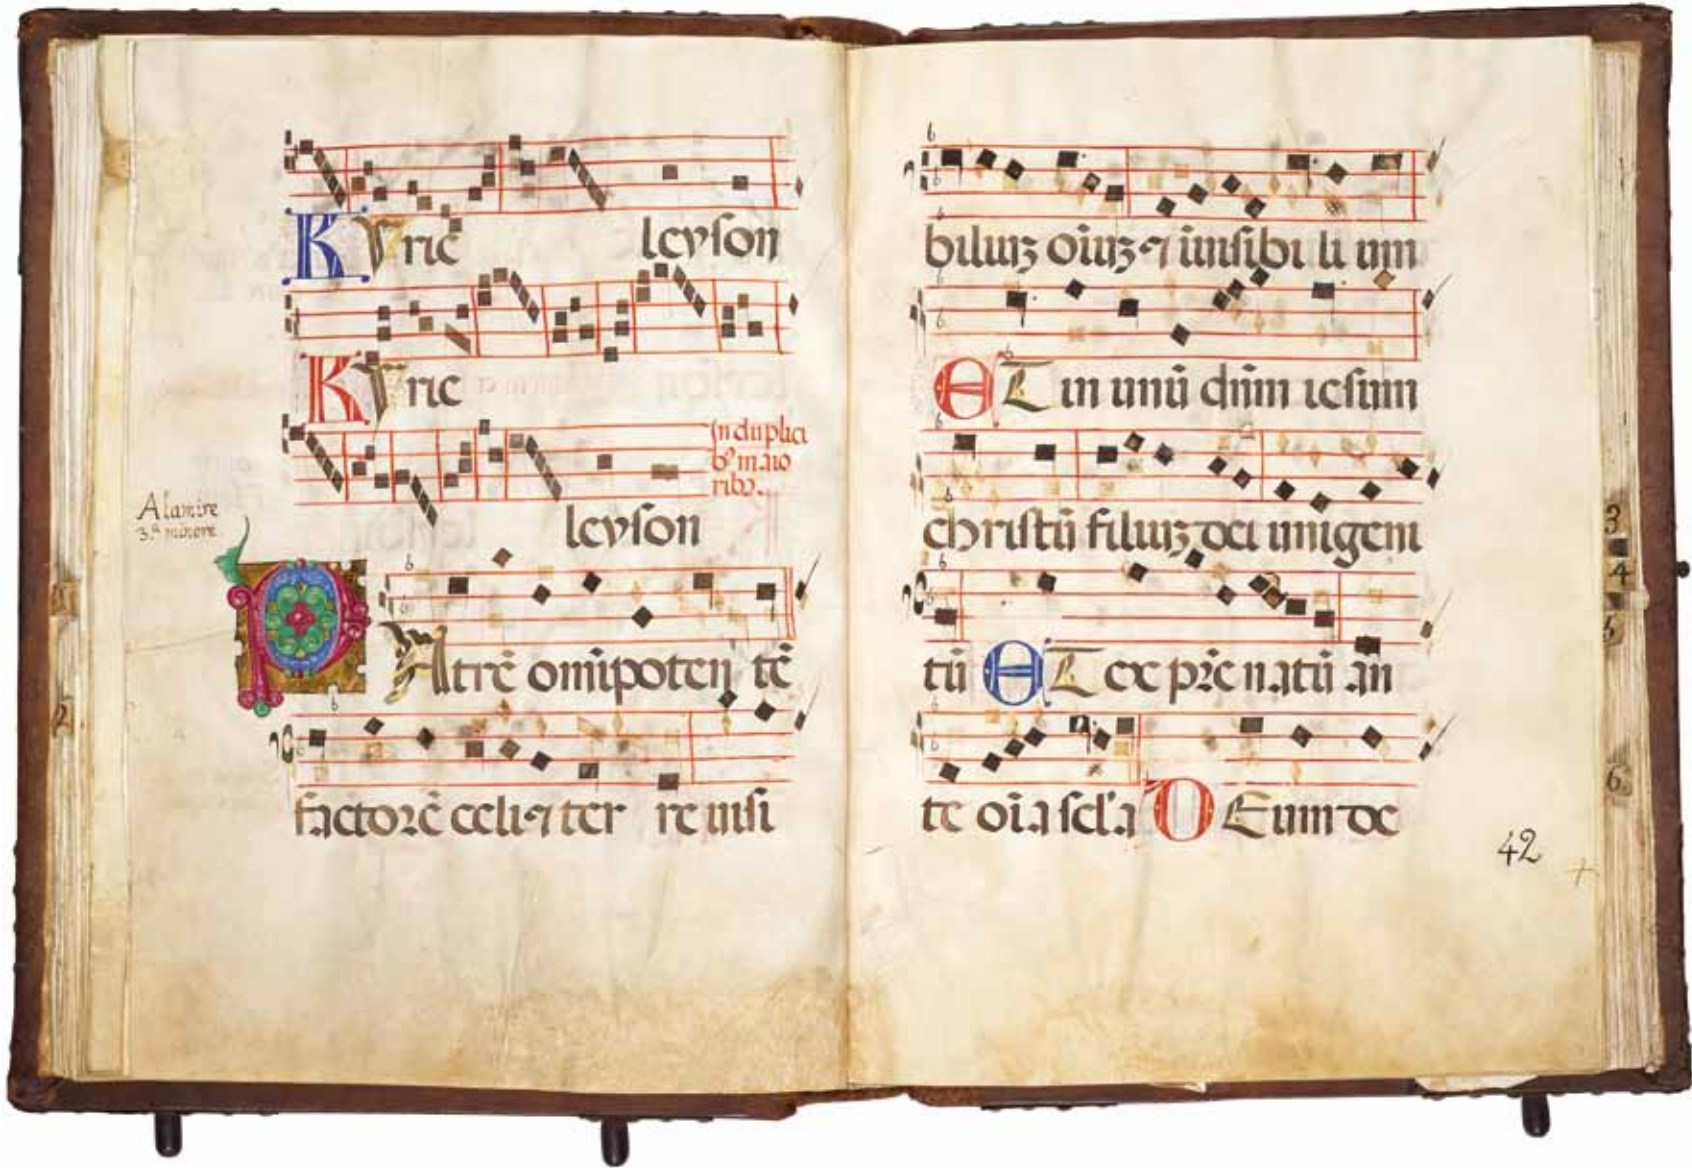 Kyrie leyson
Kyrie
In duplici
bꝯ maio
ribꝯ.
leyson
Alamire
3.a minore
PAtrē om̄ipoten tē
factorē celi ⁊ ter re uisi
biliuꝫ oīuꝫ ⁊ īuisibi li um
ET in unū dn̄m iesum
christū filiuꝫ dei unigeni
tū ET ex pr̄e natū an
te oīa scl̄a DEum de
42
1
2
3
4
5
6